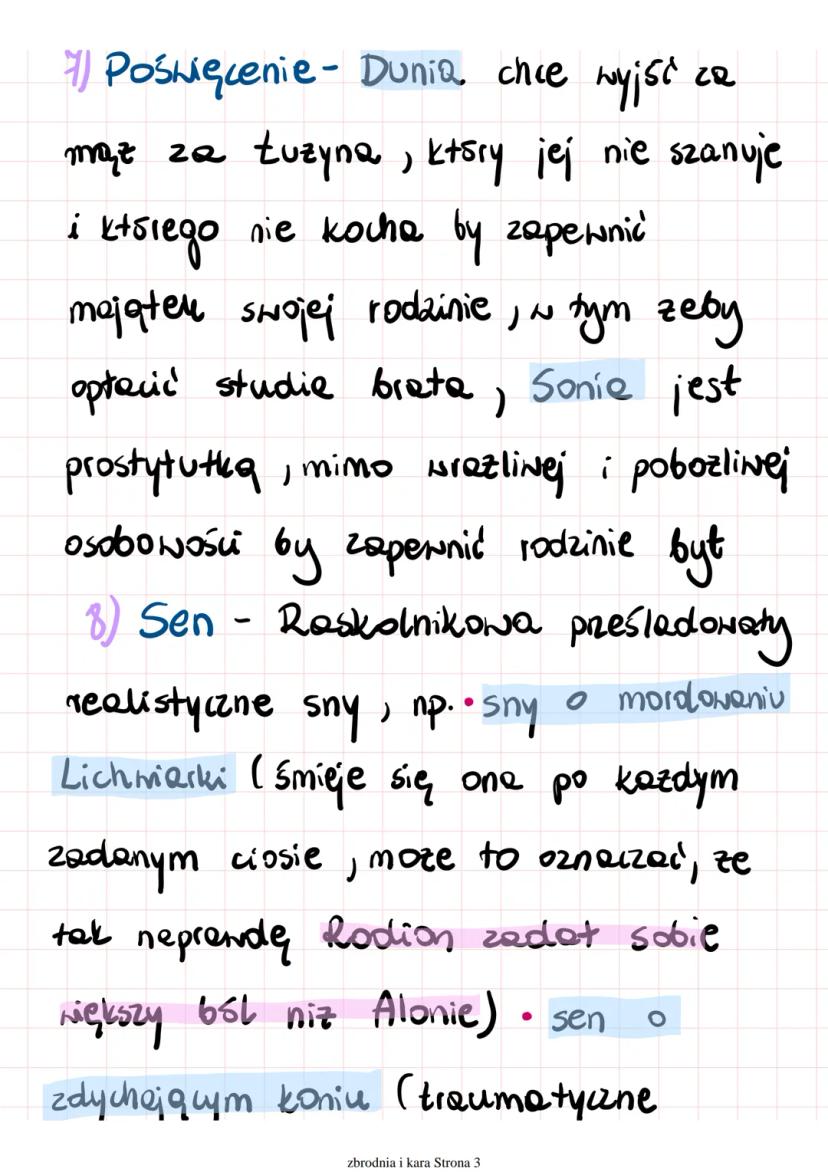 7) Poświęcenie- Dunia chce wyjść za
mąż za Łużyna, który jej nie szanuje
i którego nie kocha by zapewnić
majątek swojej rodzinie, w tym żeby
opłacić studia brata, Sonia jest
prostytutką, mimo wrażliwej i pobożliwej
osobowości by zapewnić rodzinie byt
8) Sen - Raskolnikowa prześladowały
realistyczne sny, np. • sny o mordowaniu
Lichwiarki (śmieje się ona po każdym
zadanym ciosie, może to oznaczać, że
tak naprawdę Rodion zadał sobie
większy ból niż Alonie) • sen o
zdychającym koniu (traumatyczne
zbrodnia i kara Strona 3